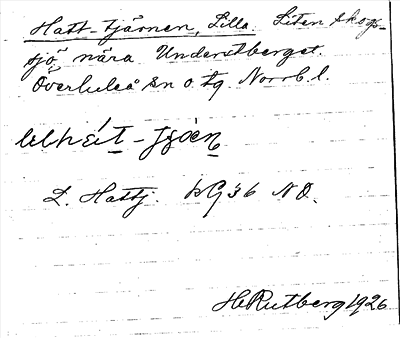 Hatt-tjärnen, Lilla. Liten skogs-
sjö nära Understberget.
Överluleå sn o. tg. Norrb. l.
L. Hattj. kG 36 NO.
H Rutberg 1926